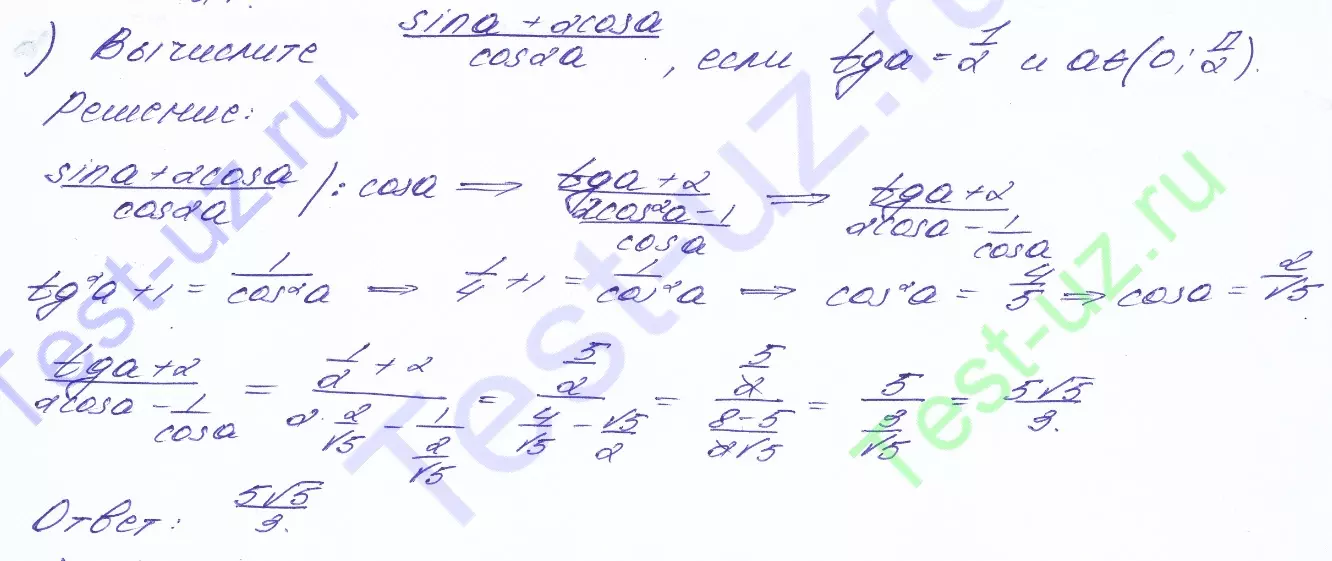 ) Вычислите (sina + 2cosa)/(cos2a), если tga = 1/2 и a∈(0; π/2).
Решение:
(sina + 2cosa)/(cos2a) /: cosa ⇒ (tga + 2)/((2cos²a - 1)/(cosa)) ⇒ (tga + 2)/(2cosa - 1/(cosa))
tg²a + 1 = 1/(cos²a) ⇒ 1/4 + 1 = 1/(cos²a) ⇒ cos²a = 4/5 ⇒ cosa = 2/√5
(tga + 2)/(2cosa - 1/(cosa)) = (1/2 + 2)/(2·2/√5 - 1/(2/√5)) = (5/2)/(4/√5 - √5/2) = (5/2)/((8-5)/(2√5)) = 5/(3/√5) = 5√5/3.
Ответ: 5√5/3.
Test-uz.ru
Test-uz.ru
Test-uz.ru